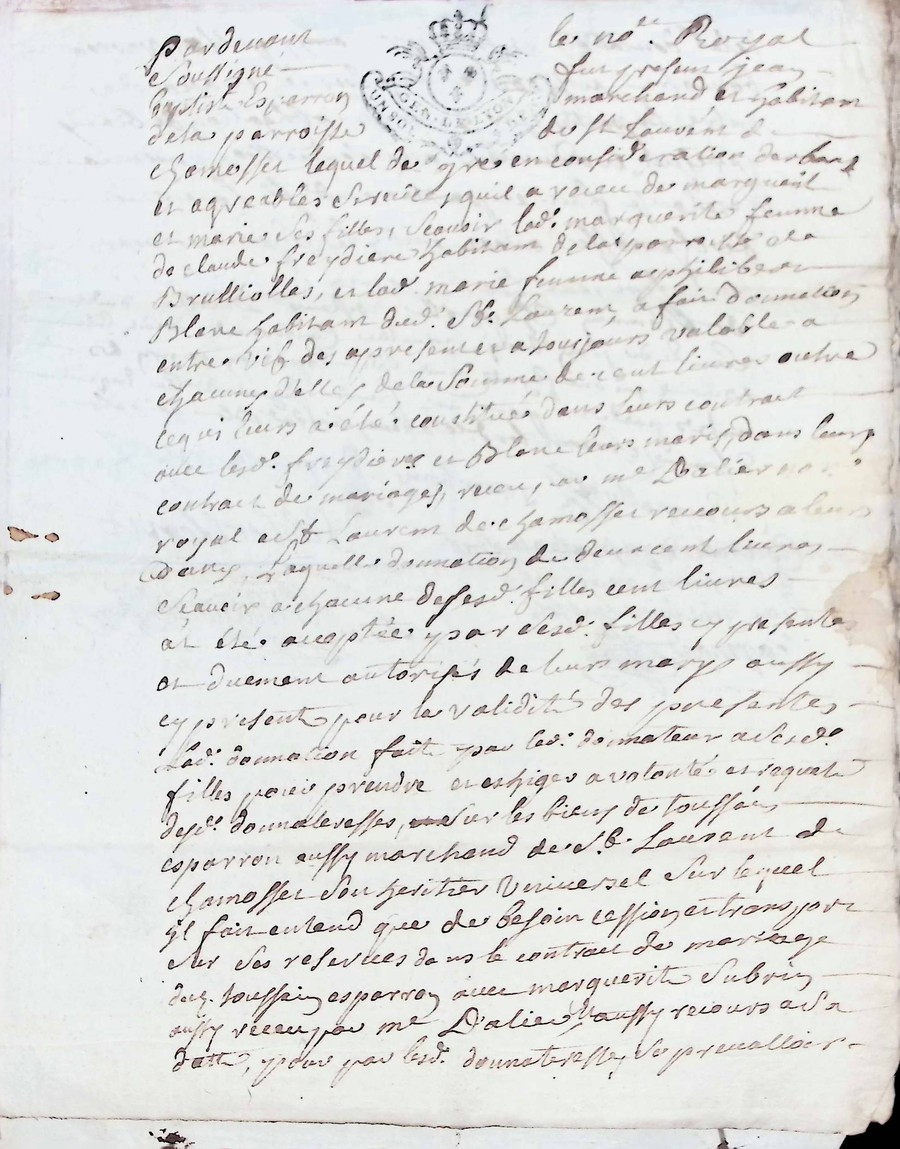 Pardevant le no.re Royal
Soussigne fut present jean
baptiste Esparron marchand et habitant
de la parroisse de St Laurent de
chamosset lequel de gre en consideration des bons
et agreables services quil a receu de marguerit
et marie ses filles, scavoir lad.e marguerite femme
de claude freydiere habitant de la parroisse de
Brulliolles, et lad.e marie femme a philibert
Blanc habitant dud.t St. Laurent, a fait donnation
entre vif des apresent et a toujours valable a
chacune d'elles de la somme de cent livres outre
ce qui leurs a été constitué dans leurs contract
avec lesd.s freydiere et Blanc leurs maris, dans leurs
contract de mariages, receu par me Dalier no.re
royal a St Laurent de chamosset recours a leurs
Dattes, Laquelle donnation de deux cent livres
scavoir a chacune desesd. filles cent livres
at été acceptée par sesd. filles cy presentes
et duement autorisés de leurs marys aussy
cy present pour la validité des presentes
Lad.e donnation fait par led.t donnateur a sesd.
filles pour prendre et exhiger a volonté et requete
desd. donnateresses, sur les biens de toussain
esparron aussy marchand de St. Laurent de
chamosset son heritier Universel sur lequel
il fait entend que de besoin cession et transport
sur ses reserves dans le contract de mariage
dud. toussain esparron avec marguerite Subrin
aussy receu par me Dalier, aussy recours a sa
datte, pour par lesd. donnateresses se prevalloir